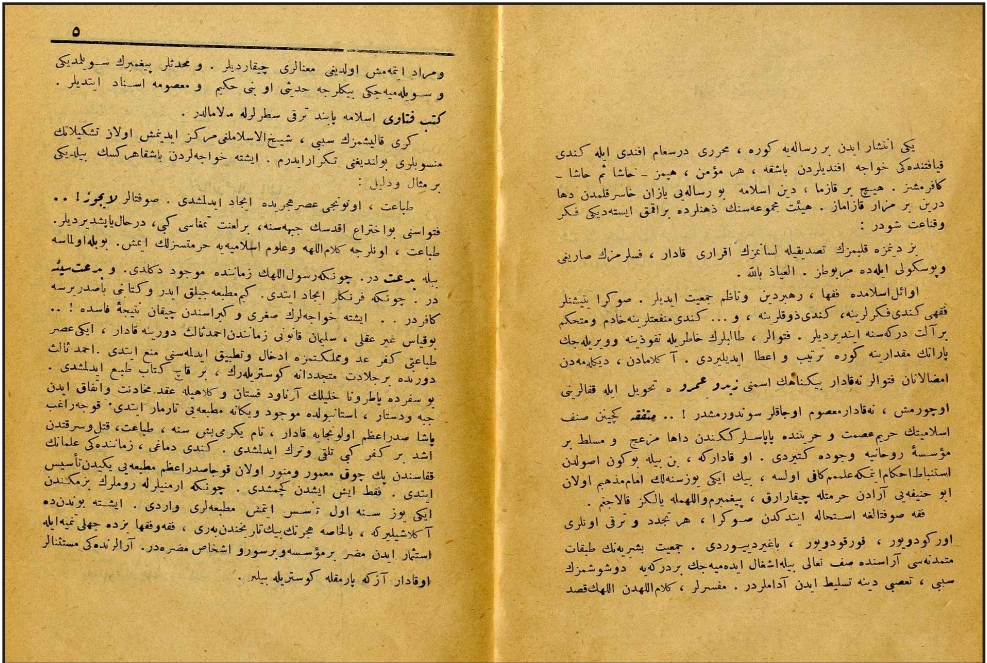 یکی انتشار ایدن بر رساله‌یه کوره ، محرری درسعام افندی ایله کندی
قیافتنده‌کی خواجه افندیلردن باشقه ، هر مؤمن ، هیمز - حاشا ثم حاشا -
کافرمشز . هیچ بر قازما ، دین اسلامه بو رساله‌یی یازان خاسر قلمدن دها
درین بر مزار قازاماز . هیئت مجموعه‌سنك ذهنلرده براقمق ایسته‌دیکی فکر
وقناعت شودر :
بز دیمزه قلبمزك تصدیقیله لسانمزك اقراری قادار ، فسلرمزك صاریغی
وپوسکولی ایله‌ده مربوطز . العیاذ بالله .
اوائل اسلامده فقها ، رهبردین وناظم جمعیت ایدیلر . صوکرا یتیشنلر
فقهی کندی فکرلرینه ، کندی ذوقلرینه ، و ... کندی منفعتلرینه خادم ومتحکم
بر آلت درکه‌سنه ایندیردیلر . فتوالر ، طالبلرك خاطریله نفوذینه وویریله‌جك
پارانك مقدارینه کوره ترتیب و اعطا ایدیلیردی . آ کلامادن ، دیکله‌مه‌دن
امضالانان فتوالر نه‌قادار بیکناهك اسمنی زیدو عمرو ه تحویل ایله قفالرینی
اوچورمش ، نه‌قادار معصوم اوجاقلر سوندورمشدر ! .. متفقه کچینن صنف
اسلامیتك حریم عصمت و حریتنده پاپاسلر کندن داها مزعج و مسلط بر
مؤسسهٔ روحانیه وجوده کتیردی . او قادارکه ، بن بیله بوکون اصولدن
استنباط احکام ایتمکه علمم کافی اولسه ، بیك ایکی یوزسنه‌لك امام مذهبم اولان
ابو حنیفه‌یی آرادن حرمتله چیقارارق ، پیغمبرم واللهمله یالکز قالاجغم .
فقه صوفتالغه استحاله ایتدکدن صوکرا ، هر تجدد و ترقی اونلری
اورکودویور ، قورقودویور ، باغیردییوردی . جمعیت بشریه‌نك طبقات
متمدنه‌سی آراسنده صف نعالی بیله اشغال ایده‌میه‌جك بر درکه‌یه دوشوشمزك
سببی ، تعصبی دینه تسلیط ایدن آداملردر . مفسرلر ، کلام اللهدن اللهك قصد
٥
ومراد ایتمه‌مش اولدیغی معنالری چیقاردیلر . و محدثلر پیغمبرك سویلمدیکی
و سویله‌میه‌جکی بیکلرجه حدیثی او نبی حکیم و معصومه اسناد ایتدیلر .
کتب فتاوی اسلامه پابند ترقی سطرلرله مالامالدر .
کری قالیشمزك سببی ، شیخ‌الاسلاملغی مرکز ایدینمش اولان تشکیلاتك
منسوبلری بولندیغنی تکرار ایدرم . ایشته خواجه‌لردن باشقا هرکسك بیلدیکی
بر مثال ودلیل :
طباعت ، اوننجی عصر هجریده ایجاد ایدلمشدی . صوفتالر لایجوز ! ..
فتواسنی بو اختراع اقدسك جبهه‌سنه ، بر لعنت تمغاسی کبی ، درحال یاپشدیردیلر .
طباعت ، اونلرجه کلام اللهه وعلوم اسلامیه‌یه حرمتسزلك ایمش . بویله اولماسه
بیله بدعت در . چونکه رسول اللهك زماننده موجود دکلدی . و بدعت سیئه
در . چونکه فرنکلر ایجاد ایتدی . کیم مطبعه‌جیلق ایدر وکتابنی باصدیررسه
کافردر . . ایشته خواجه‌لرك صغری و کبراسندن چیقان نتیجهٔ فاسده ! ..
بو قیاس غیر عقلی ، سلیمان قانونی زمانندن احمد ثالث دورینه قادار ، ایکی عصر
طباعتی کفر عد ومملکتمزه ادخال وتطبیق ایدلمسنی منع ایتدی . احمد ثالث
دورنده بر جلادت متجددانه کوستریله‌رك ، بر قاچ کتاب طبع ایدلمشدی .
بو سفرده پاطرونا خلیلك آرناود فستان و کلاهیله عقد مخادنت واتفاق ایدن
جبه ودستار ، استانبولده موجود ویکانه مطبعه‌یی تارمار ایتدی . قوجه راغب
پاشا صدراعظم اولونجایه قادار ، تام یکرمی بش سنه ، طباعت ، قتل وسرقتدن
اشد بر کفر کبی تلقی وترك ایدلمشدی . کندی دماغی ، زماننده‌کی علمانك
قفاسندن پك چوق معمور ومنور اولان قوجا صدراعظم مطبعه‌یی یکیدن تأسیس
ایتدی . فقط ایش ایشدن کچمشدی . چونکه ارمنیلرله روملرك بزمکندن
ایکی یوز سنه اول تأسس ایتمش مطبعه‌لری واردی . ایشته بوندن‌ده
آ کلاشیلیرکه ، بالخاصه هجرتك بیك تاریخندن‌بری ، فقه وفقها بزده جهلی تنمیه ایله
استثمار ایدن مضر بر مؤسسه وبر سورو اشخاص مضره‌در . آرالرنده‌کی مستثنالر
اوقادار آزکه پارمقله کوستریله بیلیر .